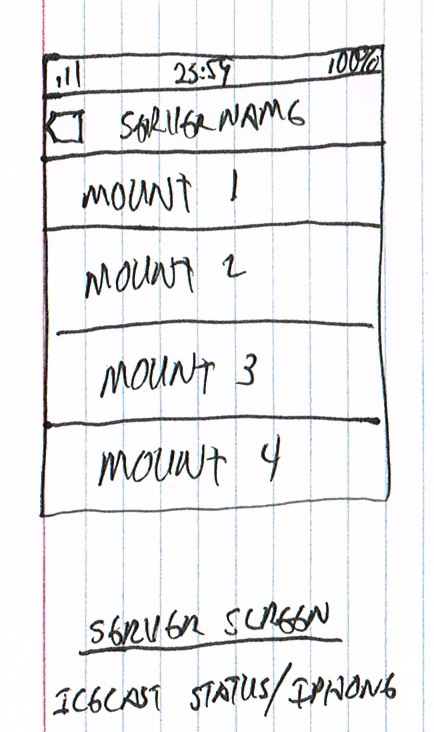 23:59 100%
SERVERNAME
MOUNT 1
MOUNT 2
MOUNT 3
MOUNT 4
SERVER SCREEN
ICECAST STATUS/IPHONE